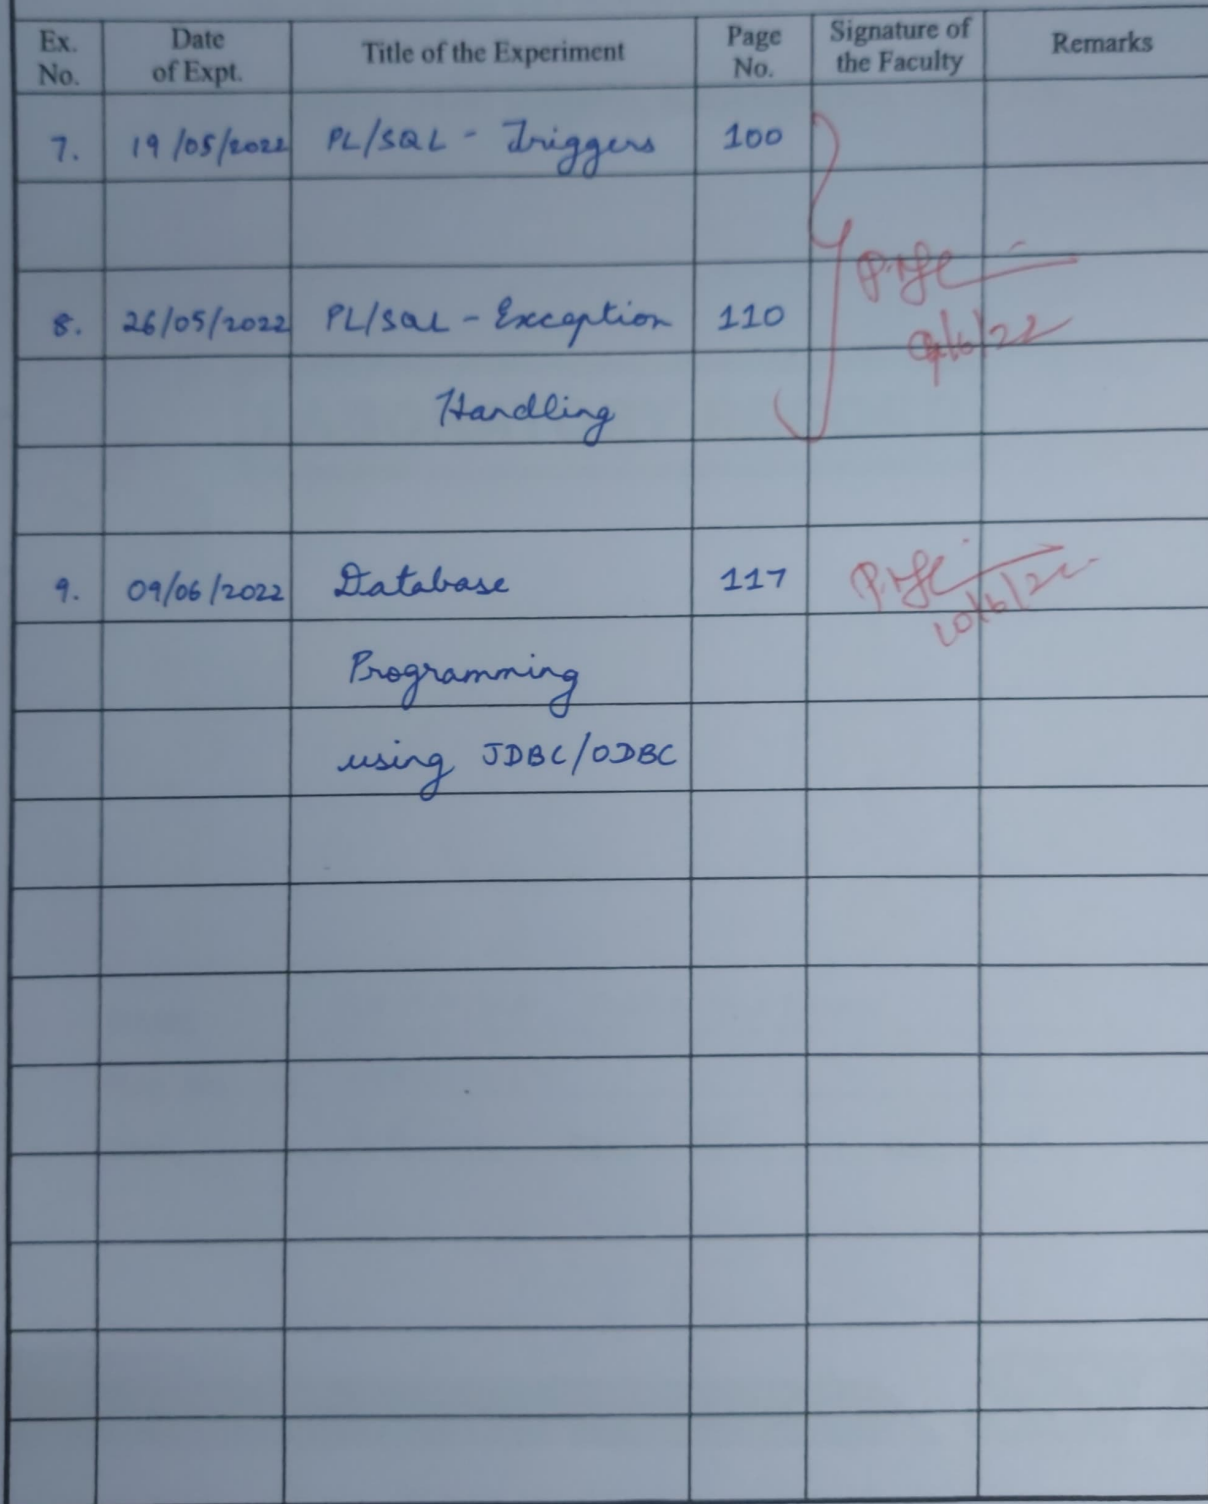 Ex. No. Date of Expt. Title of the Experiment Page No. Signature of the Faculty Remarks
7. 19/05/2022 PL/SQL - Triggers 100
8. 26/05/2022 PL/SQL - Exception 110
Handling
9/6/22
9. 09/06/2022 Database 117
10/6/22
Programming
using JDBC/ODBC